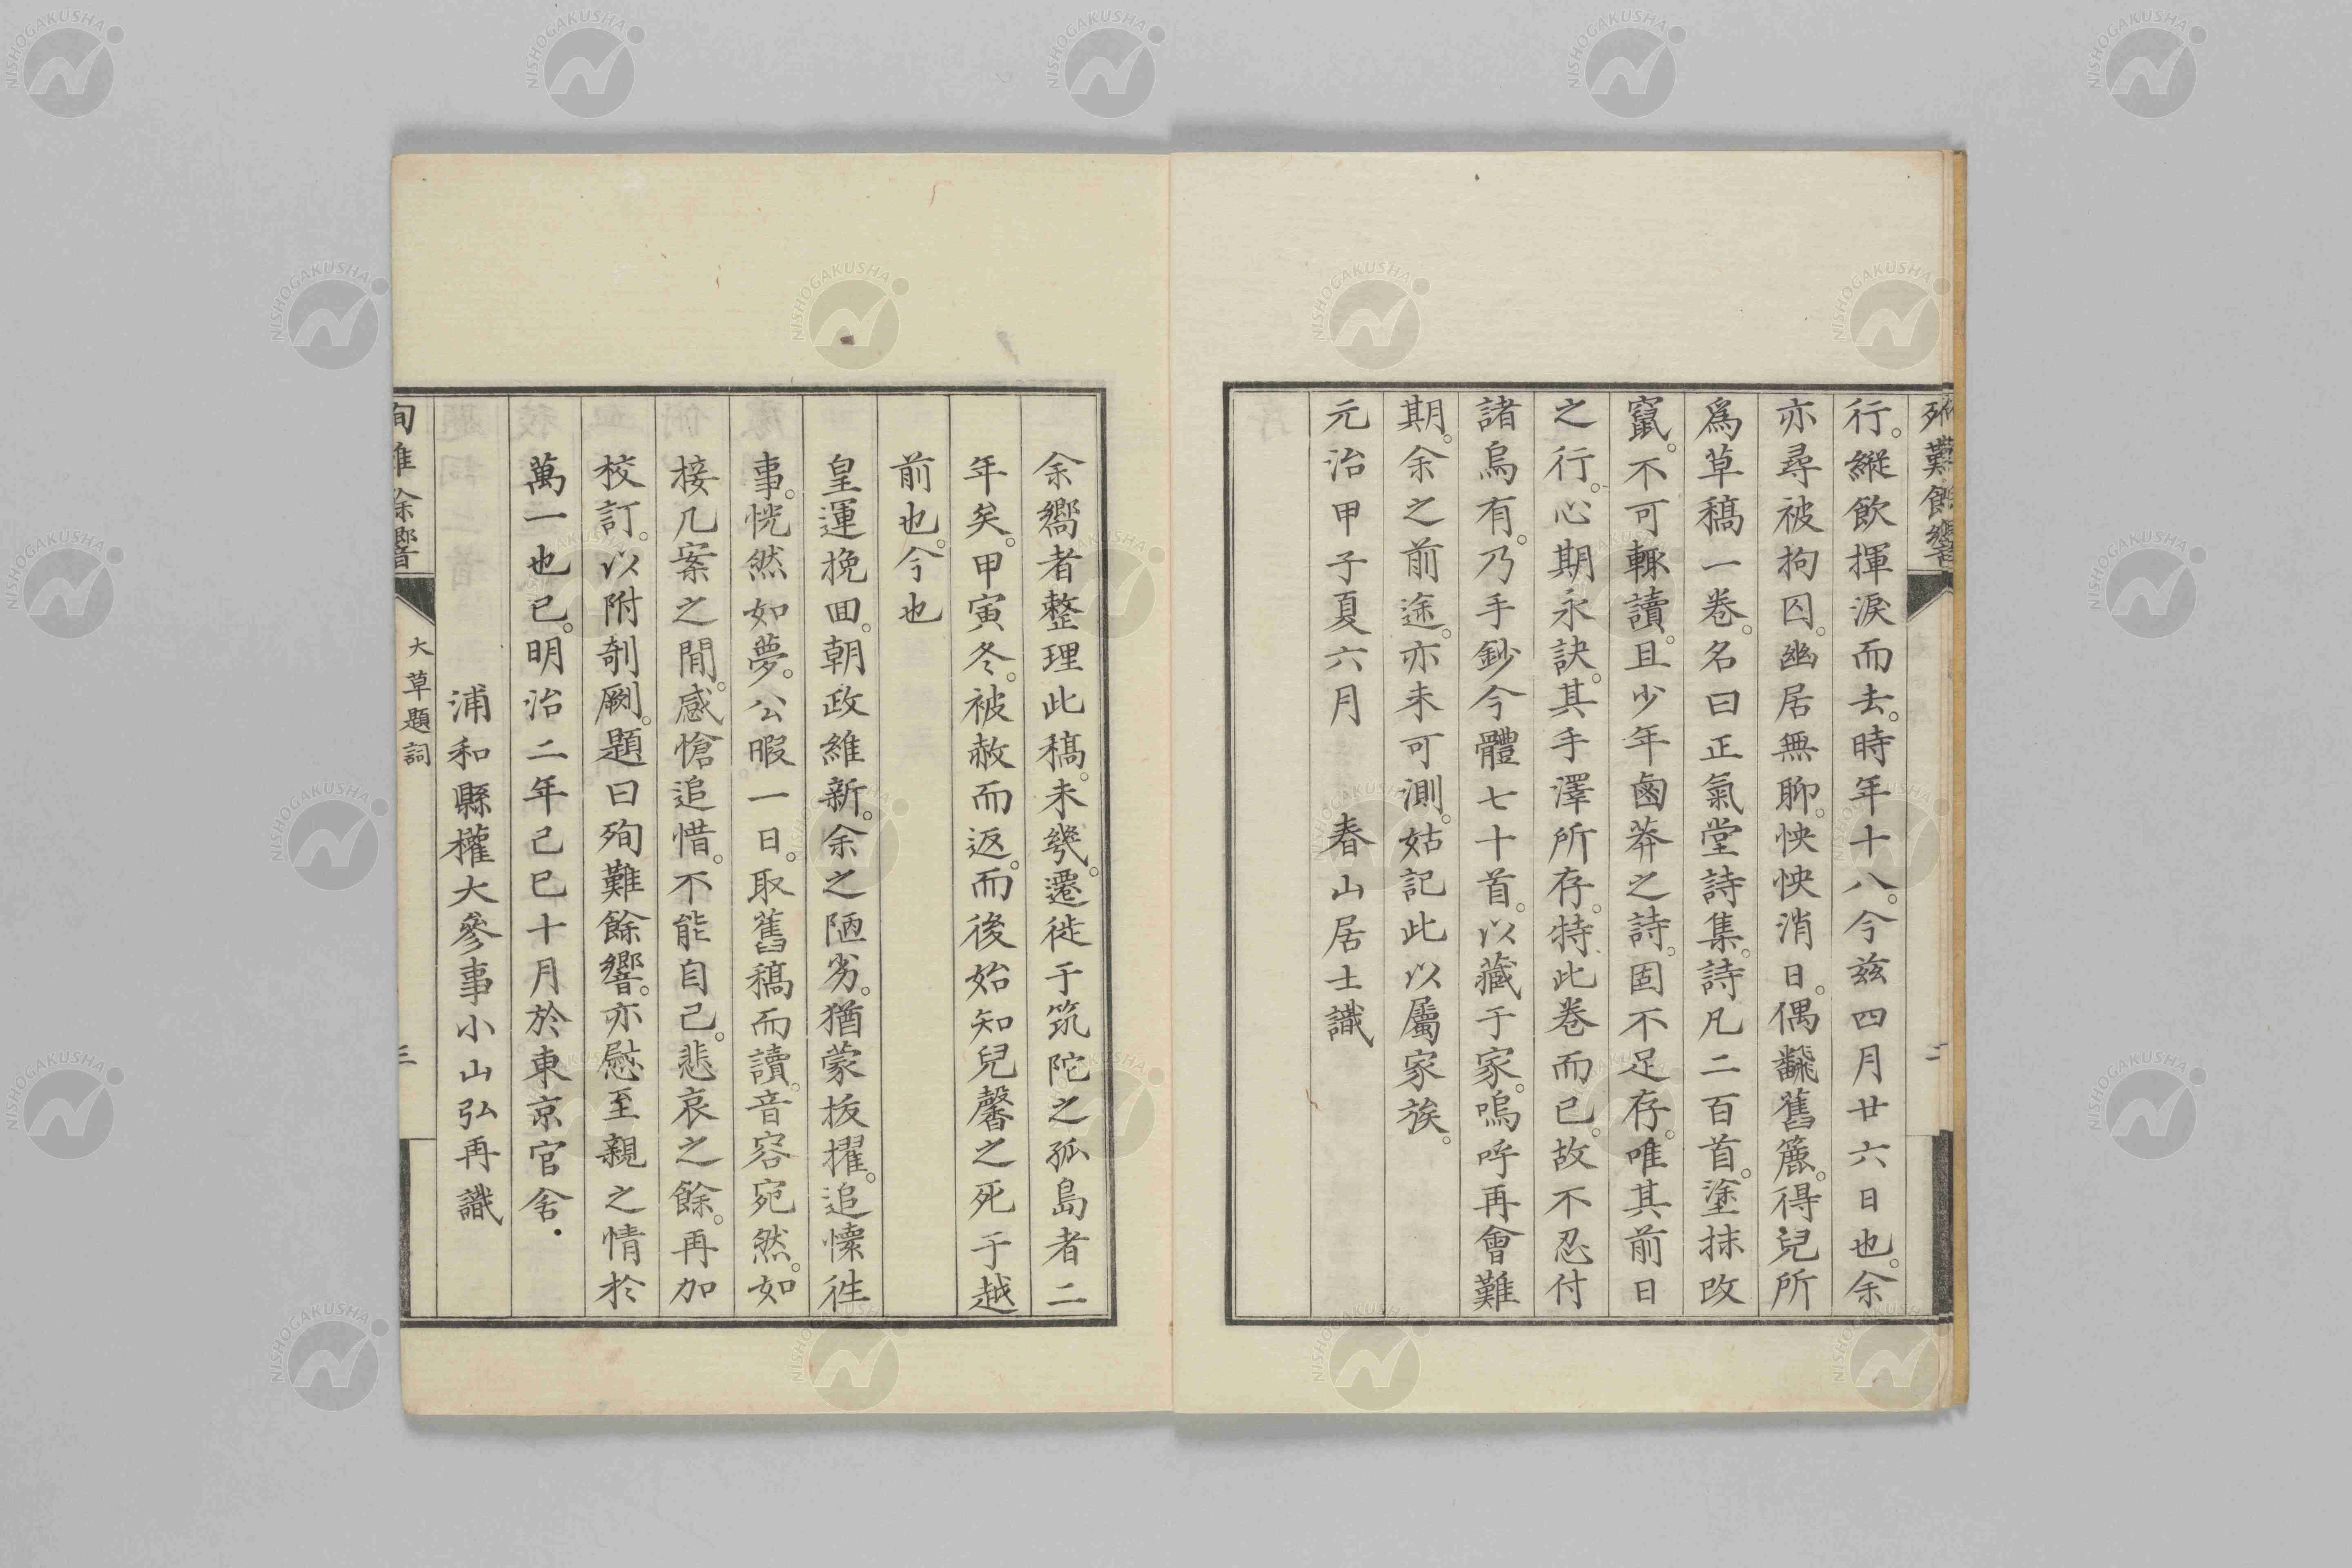 殉難餘響
二
行。縱飲揮淚而去。時年十八。今茲四月廿六日也。余
亦尋被拘囚。幽居無聊。怏怏消日。偶飜舊簏。得兒所
爲草稿一卷。名曰正氣堂詩集。詩凡二百首。塗抹改
竄。不可輙讀。且少年鹵莽之詩。固不足存。唯其前日
之行。心期永訣。其手澤所存。特此卷而已。故不忍付
諸烏有。乃手鈔今體七十首。以藏于家。嗚呼再會難
期。余之前途。亦未可測。姑記此以屬家族。
元治甲子夏六月 春山居士識
余嚮者整理此稿。未幾。遷徙于筑陀之孤島者二
年矣。甲寅冬。被赦而返。而後始知兒馨之死于越
前也。今也
皇運挽回。朝政維新。余之陋劣。猶蒙拔擢。追懷徃
事。恍然如夢。公暇一日。取舊稿而讀。音容宛然。如
接几案之間。感愴追惜。不能自己。悲哀之餘。再加
校訂。以附剞劂。題曰殉難餘響。亦慰至親之情於
萬一也已。明治二年己巳十月於東京官舍.
浦和縣權大參事小山弘再識
殉難餘響
大草題詞
三
NISHOGAKUSHA